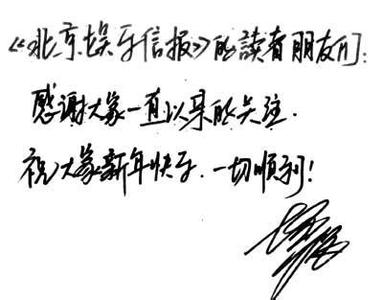 《北京娱乐信报》的讀者朋友们:
感谢大家一直以来的关注.
祝大家新年快乐.一切顺利!